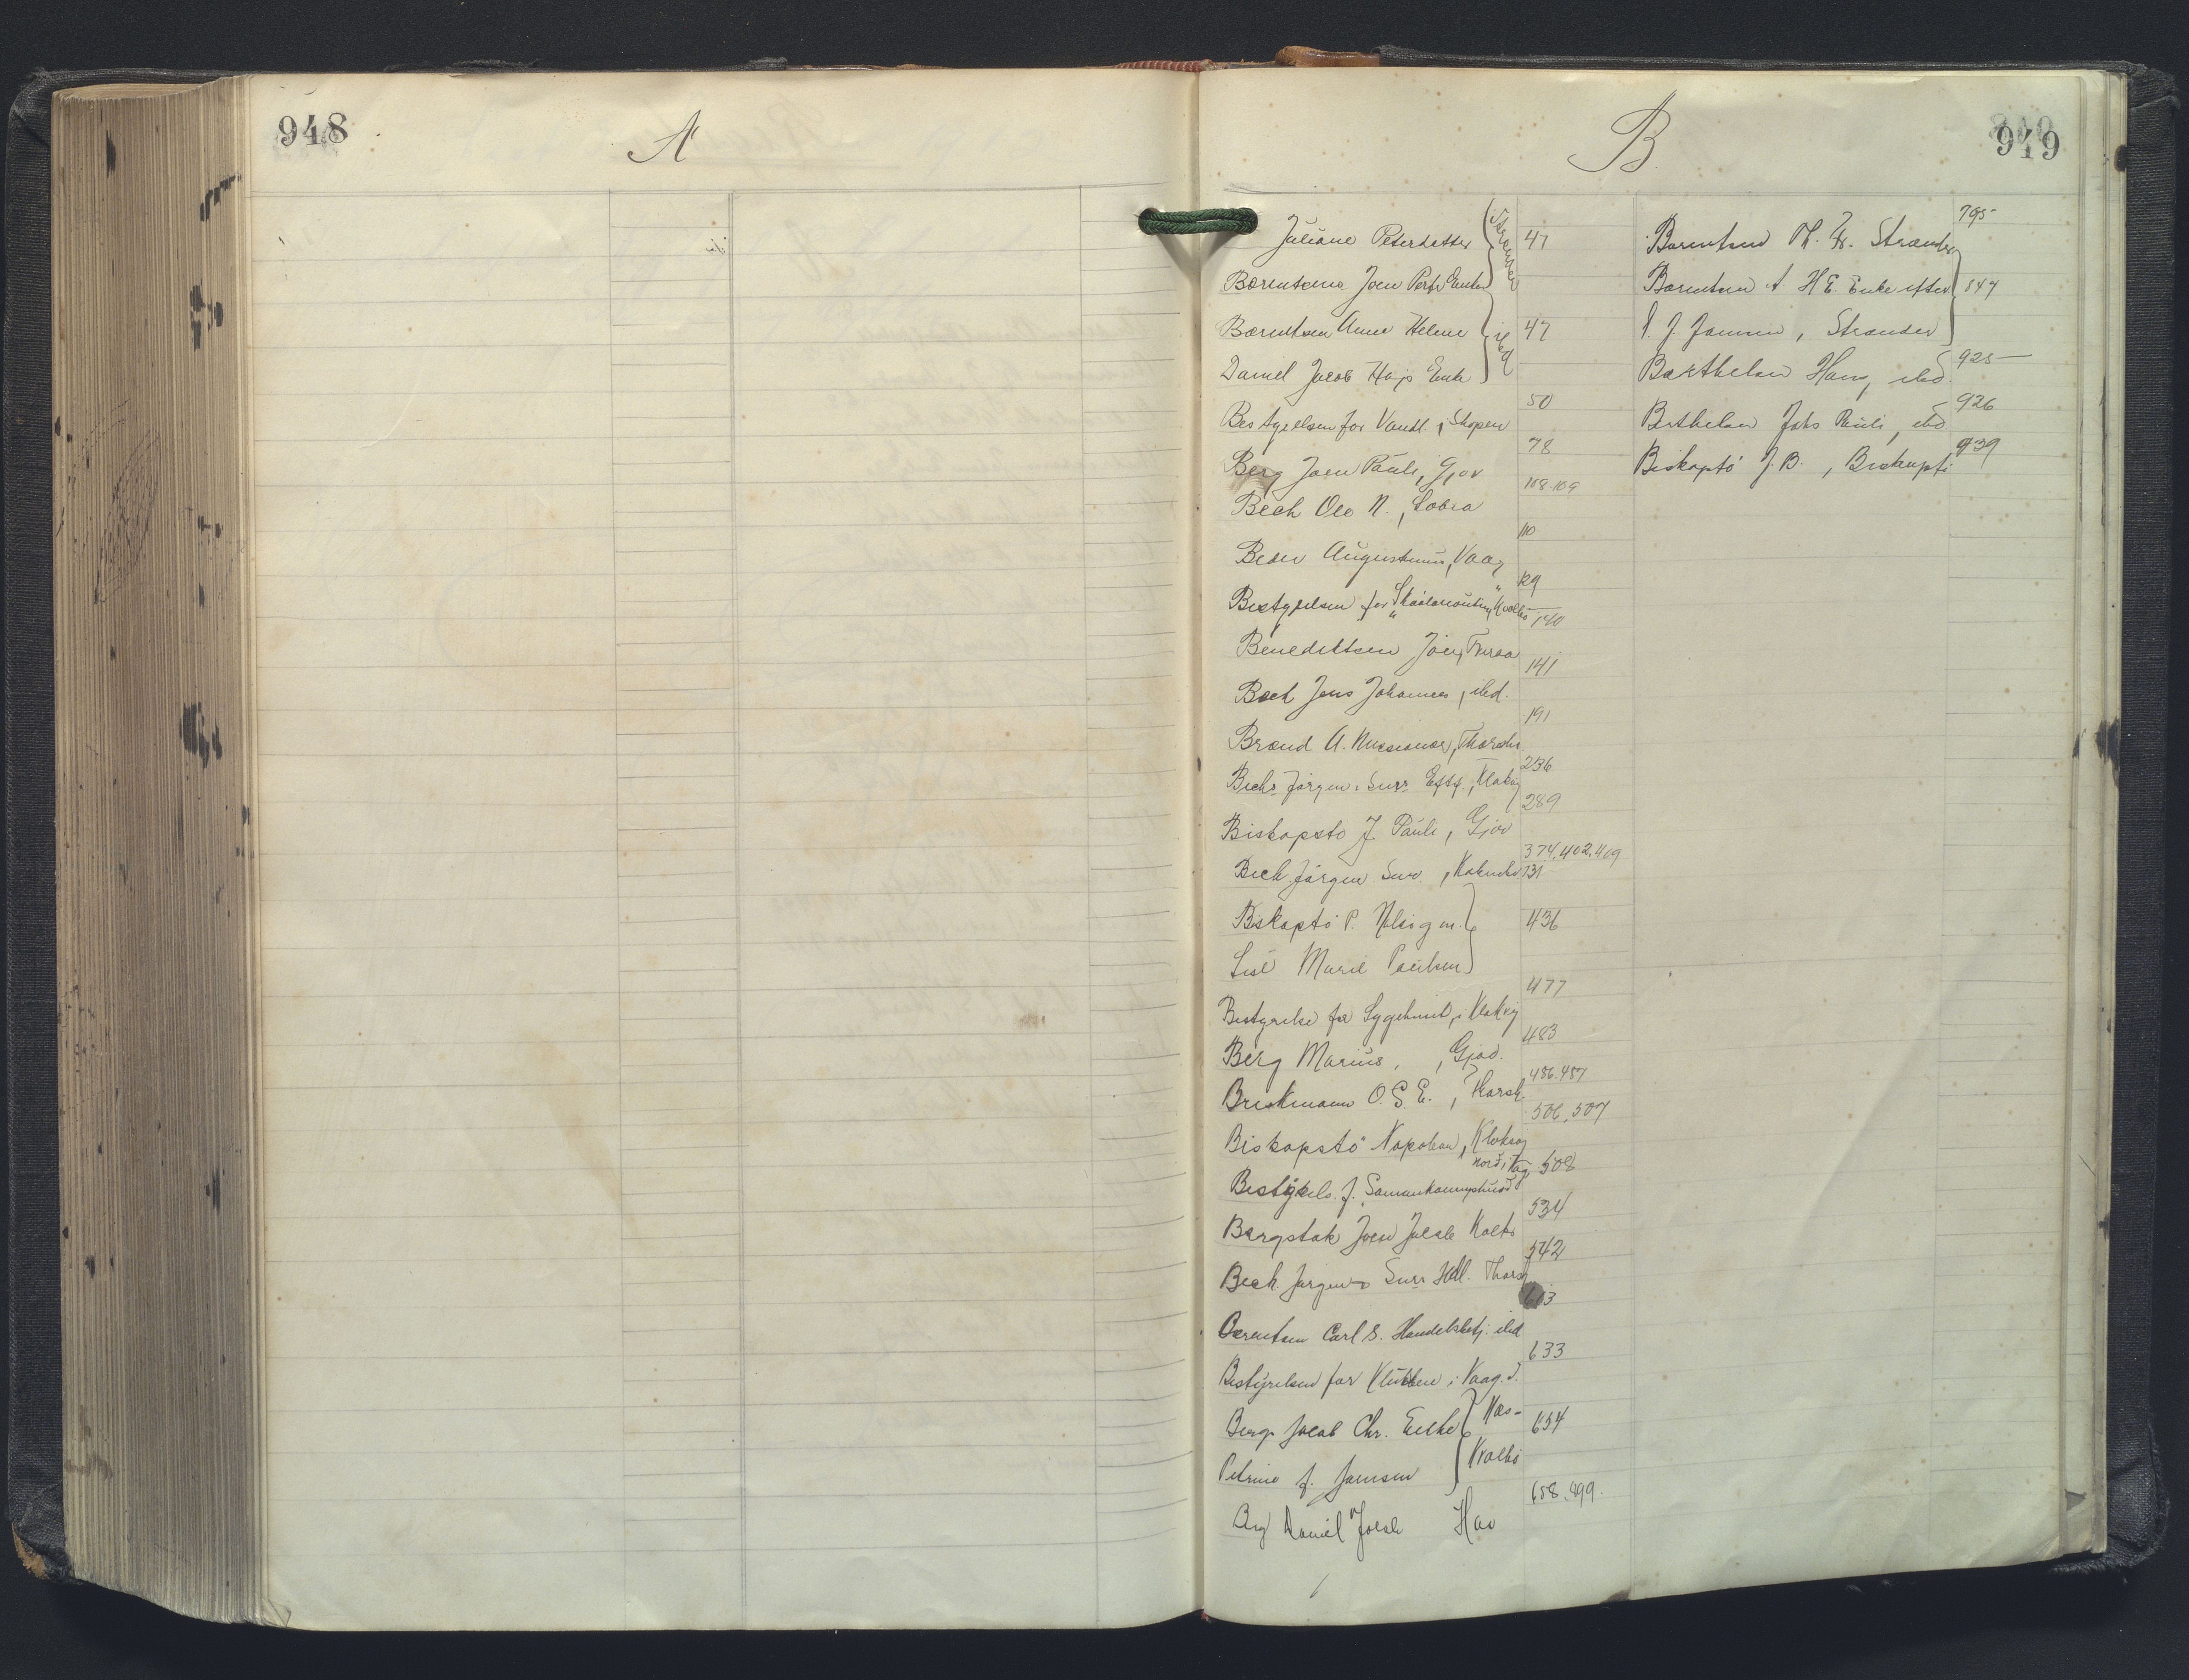 948
A
B
949
Juliane Petersdatter } Strender 47
Bærentsens Joen Peter Enke
Bærentsen Anne Helene } ibd 47
Daniel Jacob Hajs Enke
Bestyrelsen for Vandl. i Skopen 50
Berg Joen Pauli, Gjov 78
Bech Ole N., Sobra 108.109
Beder Augustinus, Vaag 110
Bestyrelsen for "Skaalanoutin" Kvalbö 129
Benediktsen Joen, Furaa 140
Bech Jens Johannes, ibd. 141
Brand A. Missionær, Thorshv 191
Bechs Jørgen Sues Eftf., Klakvig 236
Biskopsto J. Pauli, Gjov 289
Bech Jørgen Sues, 374,402,409
131
Biskopstö P. Nolsö g m. } 436
Sus Marie Poulsen
Bestyrelse for Sygehuset i Klakvig 477
Berg Marius, , Gjov. 483
Brickmann O.S.E., Thorsh. 486.487
Biskopstö Napoleon, Klaksvig 506, 507
Bestyrels. f. Samankomuphusið nord i Vag 508
Bergstak Joen Jacob Kolts 534
Bech Jørgens Sues Hdl. Thorsh 542
Bærentsen Carl S. Handelsbetj. ibd 613
Bestyrelsen for Klubben i Vaag. S. 633
Berg Jacob Chr. Enke } Næs- 654
Petrine f. Joensen } Kvalbö
Berg Daniel Jacob Hov 658,899.
Bærentsen Th. Fr. Strænder 795
Bærentsen A H E. Enke efter } 847
P. J. Joensen, Strænder
Barthelsen Hans, ibd. 925
Berthelsen Johs Pauli, ibd 926
Biskopstö J. B., Biskupstö 939